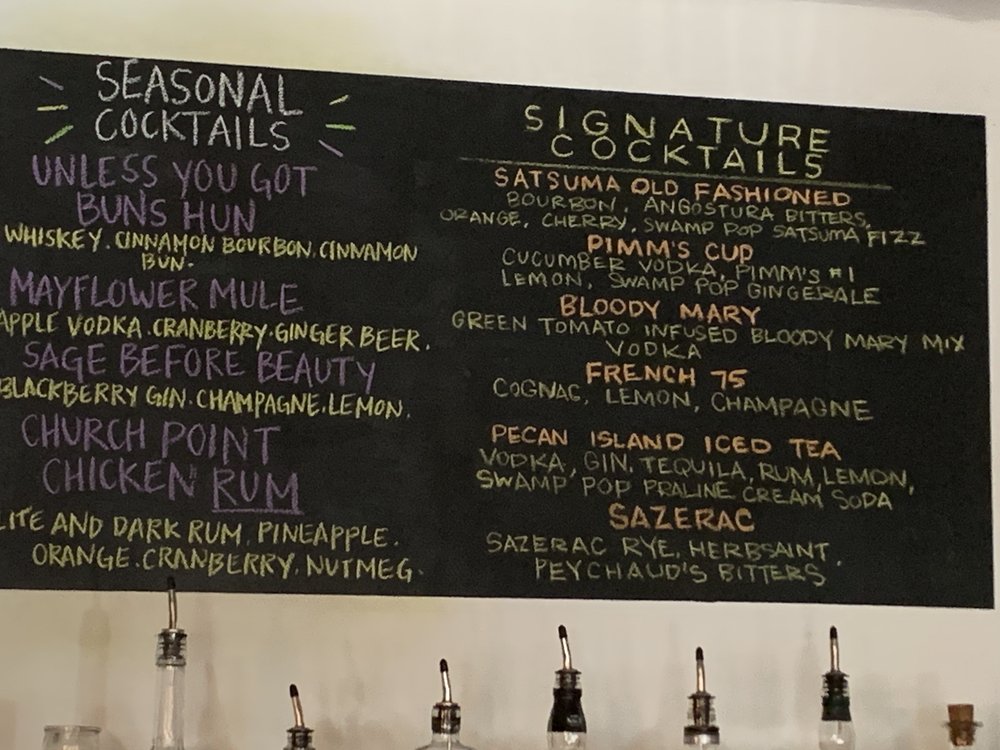 SEASONAL
COCKTAILS
UNLESS YOU GOT
BUNS HUN
WHISKEY. CINNAMON BOURBON. CINNAMON
BUN.
MAYFLOWER MULE
APPLE VODKA. CRANBERRY. GINGER BEER.
SAGE BEFORE BEAUTY
BLACKBERRY GIN. CHAMPAGNE. LEMON.
CHURCH POINT
CHICKEN RUM
LITE AND DARK RUM. PINEAPPLE.
ORANGE. CRANBERRY. NUTMEG.
SIGNATURE
COCKTAILS
SATSUMA OLD FASHIONED
BOURBON, ANGOSTURA BITTERS,
ORANGE, CHERRY, SWAMP POP SATSUMA FIZZ
PIMM'S CUP
CUCUMBER VODKA, PIMM'S #1
LEMON, SWAMP POP GINGERALE
BLOODY MARY
GREEN TOMATO INFUSED BLOODY MARY MIX
VODKA
FRENCH 75
COGNAC, LEMON, CHAMPAGNE
PECAN ISLAND ICED TEA
VODKA, GIN, TEQUILA, RUM, LEMON,
SWAMP POP PRALINE CREAM SODA
SAZERAC
SAZERAC RYE, HERBSAINT,
PEYCHAUD'S BITTERS